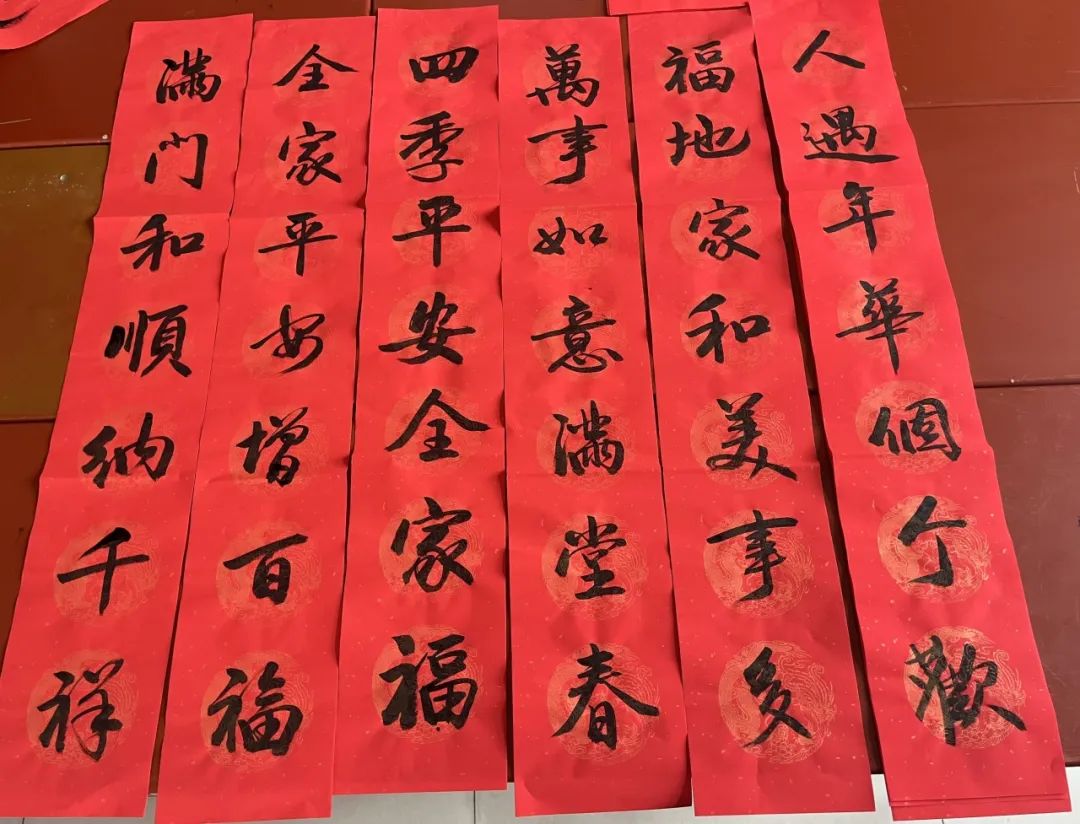 人遇年華個亇歡
福地家和美事多
萬事如意滿堂春
四季平安全家福
全家平安增百福
滿門和順納千祥